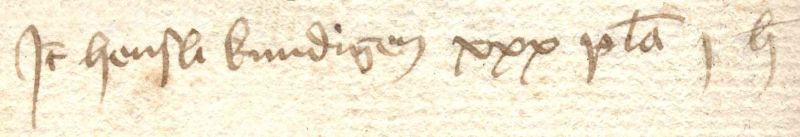 It hensli kundigen xxx pla j h